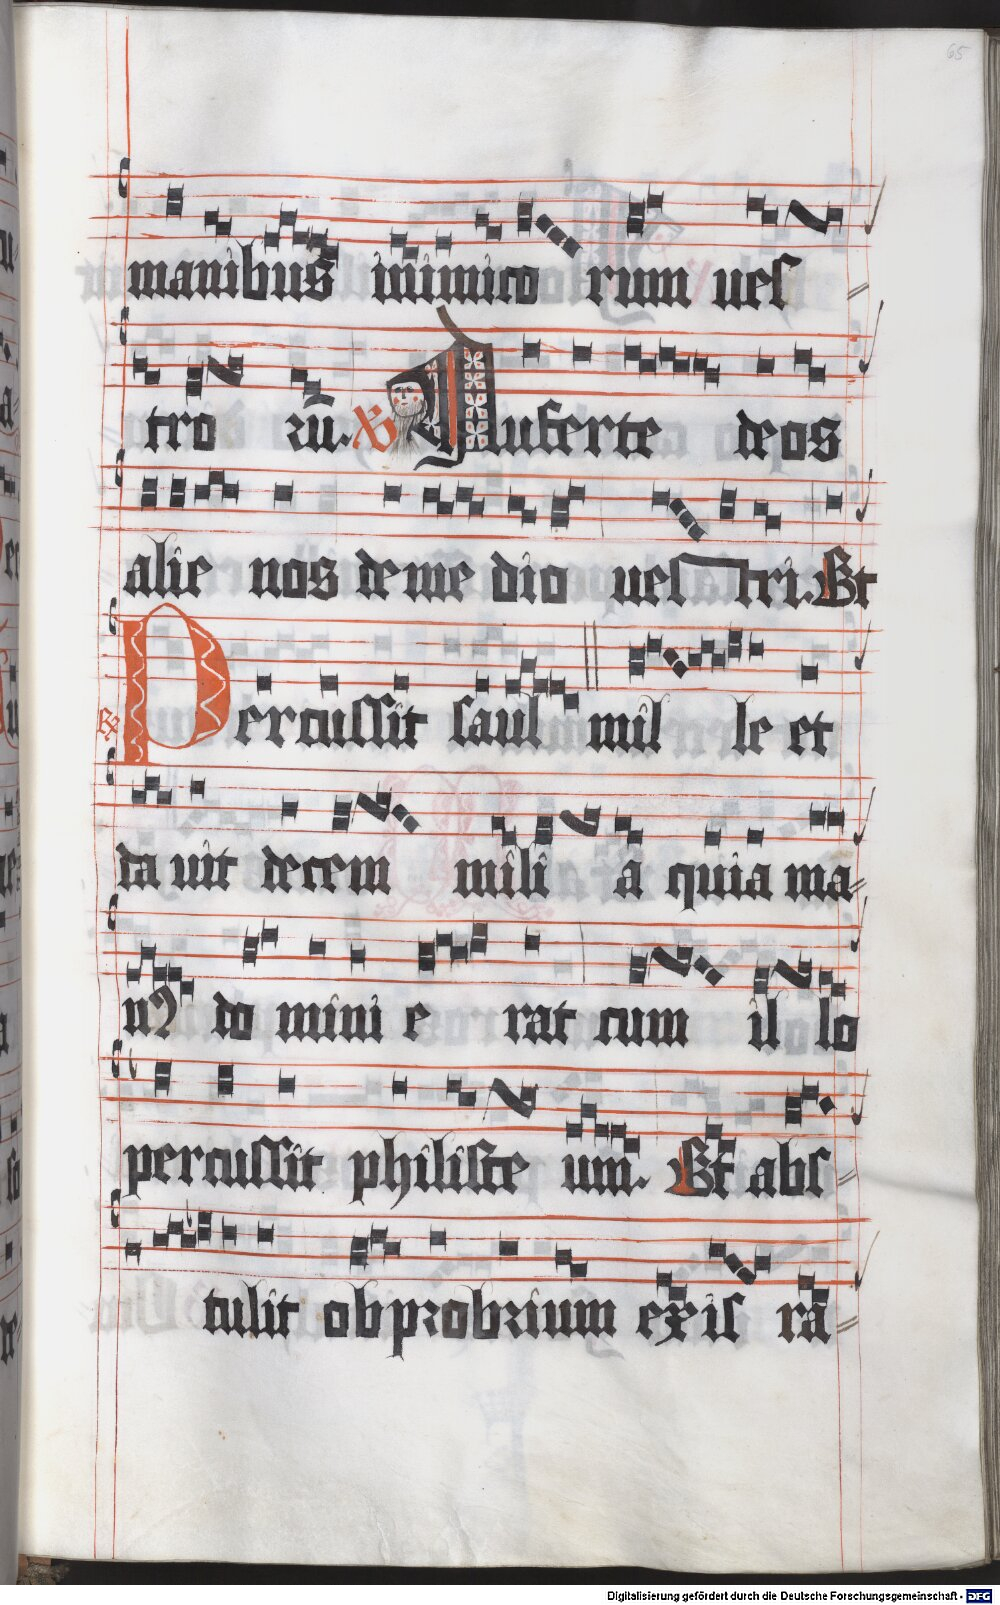 65
manibus inimico rum ues
tro rū. ℣ Auferte deos
alie nos de me dio ues tri. Et
℟ Percussit saul mil le et
da uit decem mili a quia ma
nꝰ do mini e rat cum il lo
percussit philiste um. Et abs
tulit obprobrium ex is ra
Digitalisierung gefördert durch die Deutsche Forschungsgemeinschaft - DFG